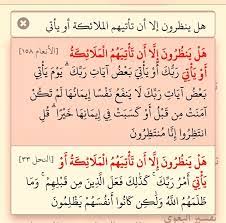 هل ينظرون إلا أن تأتيهم الملائكة أو يأتي
هَلْ يَنظُرُونَ إِلَّا أَن تَأْتِيَهُمُ الْمَلَائِكَةُ [الأنعام ١٥٨]
أَوْ يَأْتِيَ رَبُّكَ أَوْ يَأْتِيَ بَعْضُ آيَاتِ رَبِّكَ ۗ يَوْمَ يَأْتِي
بَعْضُ آيَاتِ رَبِّكَ لَا يَنفَعُ نَفْسًا إِيمَانُهَا لَمْ تَكُنْ
آمَنَتْ مِن قَبْلُ أَوْ كَسَبَتْ فِي إِيمَانِهَا خَيْرًا ۗ قُلِ
انتَظِرُوا إِنَّا مُنتَظِرُونَ
هَلْ يَنظُرُونَ إِلَّا أَن تَأْتِيَهُمُ الْمَلَائِكَةُ أَوْ [النحل ٣٣]
يَأْتِيَ أَمْرُ رَبِّكَ ۚ كَذَٰلِكَ فَعَلَ الَّذِينَ مِن قَبْلِهِمْ ۚ وَمَا
ظَلَمَهُمُ اللَّهُ وَلَٰكِن كَانُوا أَنفُسَهُمْ يَظْلِمُونَ
تفسير البغوي